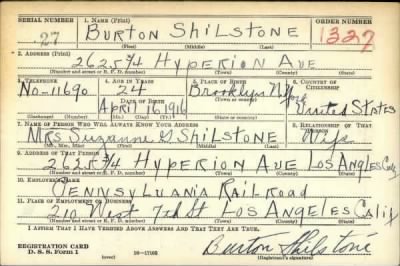 SERIAL NUMBER 1. NAME (Print) ORDER NUMBER
27 BURTON SHILSTONE 1327
(First) (Middle) (Last)
2. ADDRESS (Print)
2625 3/4 HYPERION AVE
(Number and street or R. F. D. number) (Town) (County) (State)
3. TELEPHONE 4. AGE IN YEARS 5. PLACE OF BIRTH 6. COUNTRY OF CITIZENSHIP
NO-11690 24 Brooklyn
DATE OF BIRTH (Town or county)
APril 16 1916 United States
(Mo.) (Day) (Yr.) (State or country)
7. NAME OF PERSON WHO WILL ALWAYS KNOW YOUR ADDRESS 8. RELATIONSHIP OF THAT PERSON
MRS Suzanne G. SHILSTONE Wife
(Mr., Mrs., Miss) (First) (Middle) (Last)
9. ADDRESS OF THAT PERSON
2625 3/4 HYPERION AVE LOS ANGELES Calif
(Number and street or R. F. D. number) (Town) (County) (State)
10. EMPLOYER'S NAME
PENNSYLVANIA RAILROAD
11. PLACE OF EMPLOYMENT OR BUSINESS
210 West 7th St LOS ANGELES Calif
(Number and street or R. F. D. number) (Town) (County) (State)
I AFFIRM THAT I HAVE VERIFIED ABOVE ANSWERS AND THAT THEY ARE TRUE.
REGISTRATION CARD
D. S. S. Form 1 (over) 16-17105 Burton Shilstone
(Registrant's signature)